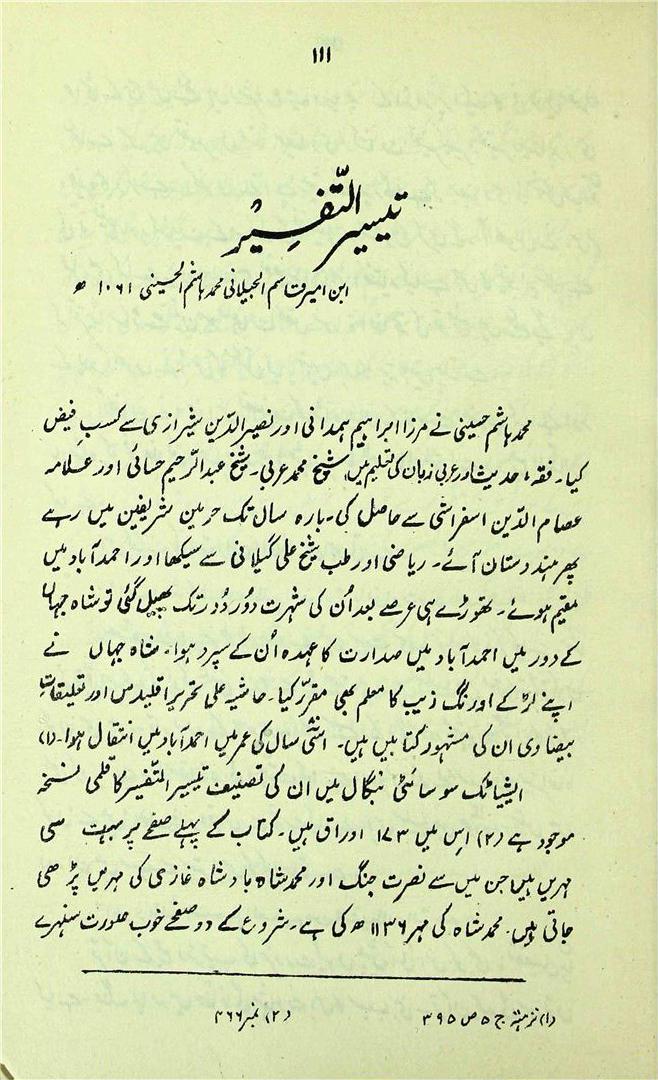 ۱۱۱
تیسیر التّفسیر
ابن امیر قاسم الجیلانی محمد ہاشم الحسینی ۱۰۶۱ ھ
محمد ہاشم حسینی نے مرزا ابراہیم ہمدانی اور نصیر الدّین شیرازی سے کسبِ فیض
کیا۔ فقہ، حدیث اور عربی زبان کی تعلیم میں شیخ محمد عربی۔ شیخ عبد الرحیم حسائی اور علامہ
عصام الدّین اسفرائنی سے حاصل کی۔ بارہ سال تک حرمین شریفین میں رہے
پھر ہندوستان آئے۔ ریاضی اور طب شیخ علی گیلانی سے سیکھا اور احمد آباد میں
مقیم ہوئے۔ تھوڑے ہی عرصے بعد اُن کی شہرت دُور دُور تک پھیل گئی تو شاہ جہاں
کے دور میں احمد آباد میں صدارت کا عہدہ اُن کے سپرد ہوا۔ شاہ جہاں نے
اپنے لڑکے اورنگ زیب کا معلم بھی مقرّر کیا۔ حاشیہ علی تحریر اقلیدس اور تعلیقاتِ
بیضاوی ان کی مشہور کتابیں ہیں۔ اسّی سال کی عمر میں احمد آباد میں انتقال ہوا۔ (۱)
ایشیاٹک سوسائٹی بنگال میں ان کی تصنیف تیسیر التّفسیر کا قلمی نسخہ
موجود ہے (۲) اِس میں ۱۷۳ اوراق ہیں۔ کتاب کے پہلے صفحے پر بہت سی
مہریں ہیں جن میں سے نصرت جنگ اور محمد شاہ بادشاہ غازی کی مہریں پڑھی
جاتی ہیں۔ محمد شاہ کی مہر ۱۱۳۶ ھ کی ہے۔ شروع کے دو صفحے خوب صورت سنہرے
(۱) نزہتہ ج ۵ ص ۳۹۵ (۲) نمبر ۳۶۶